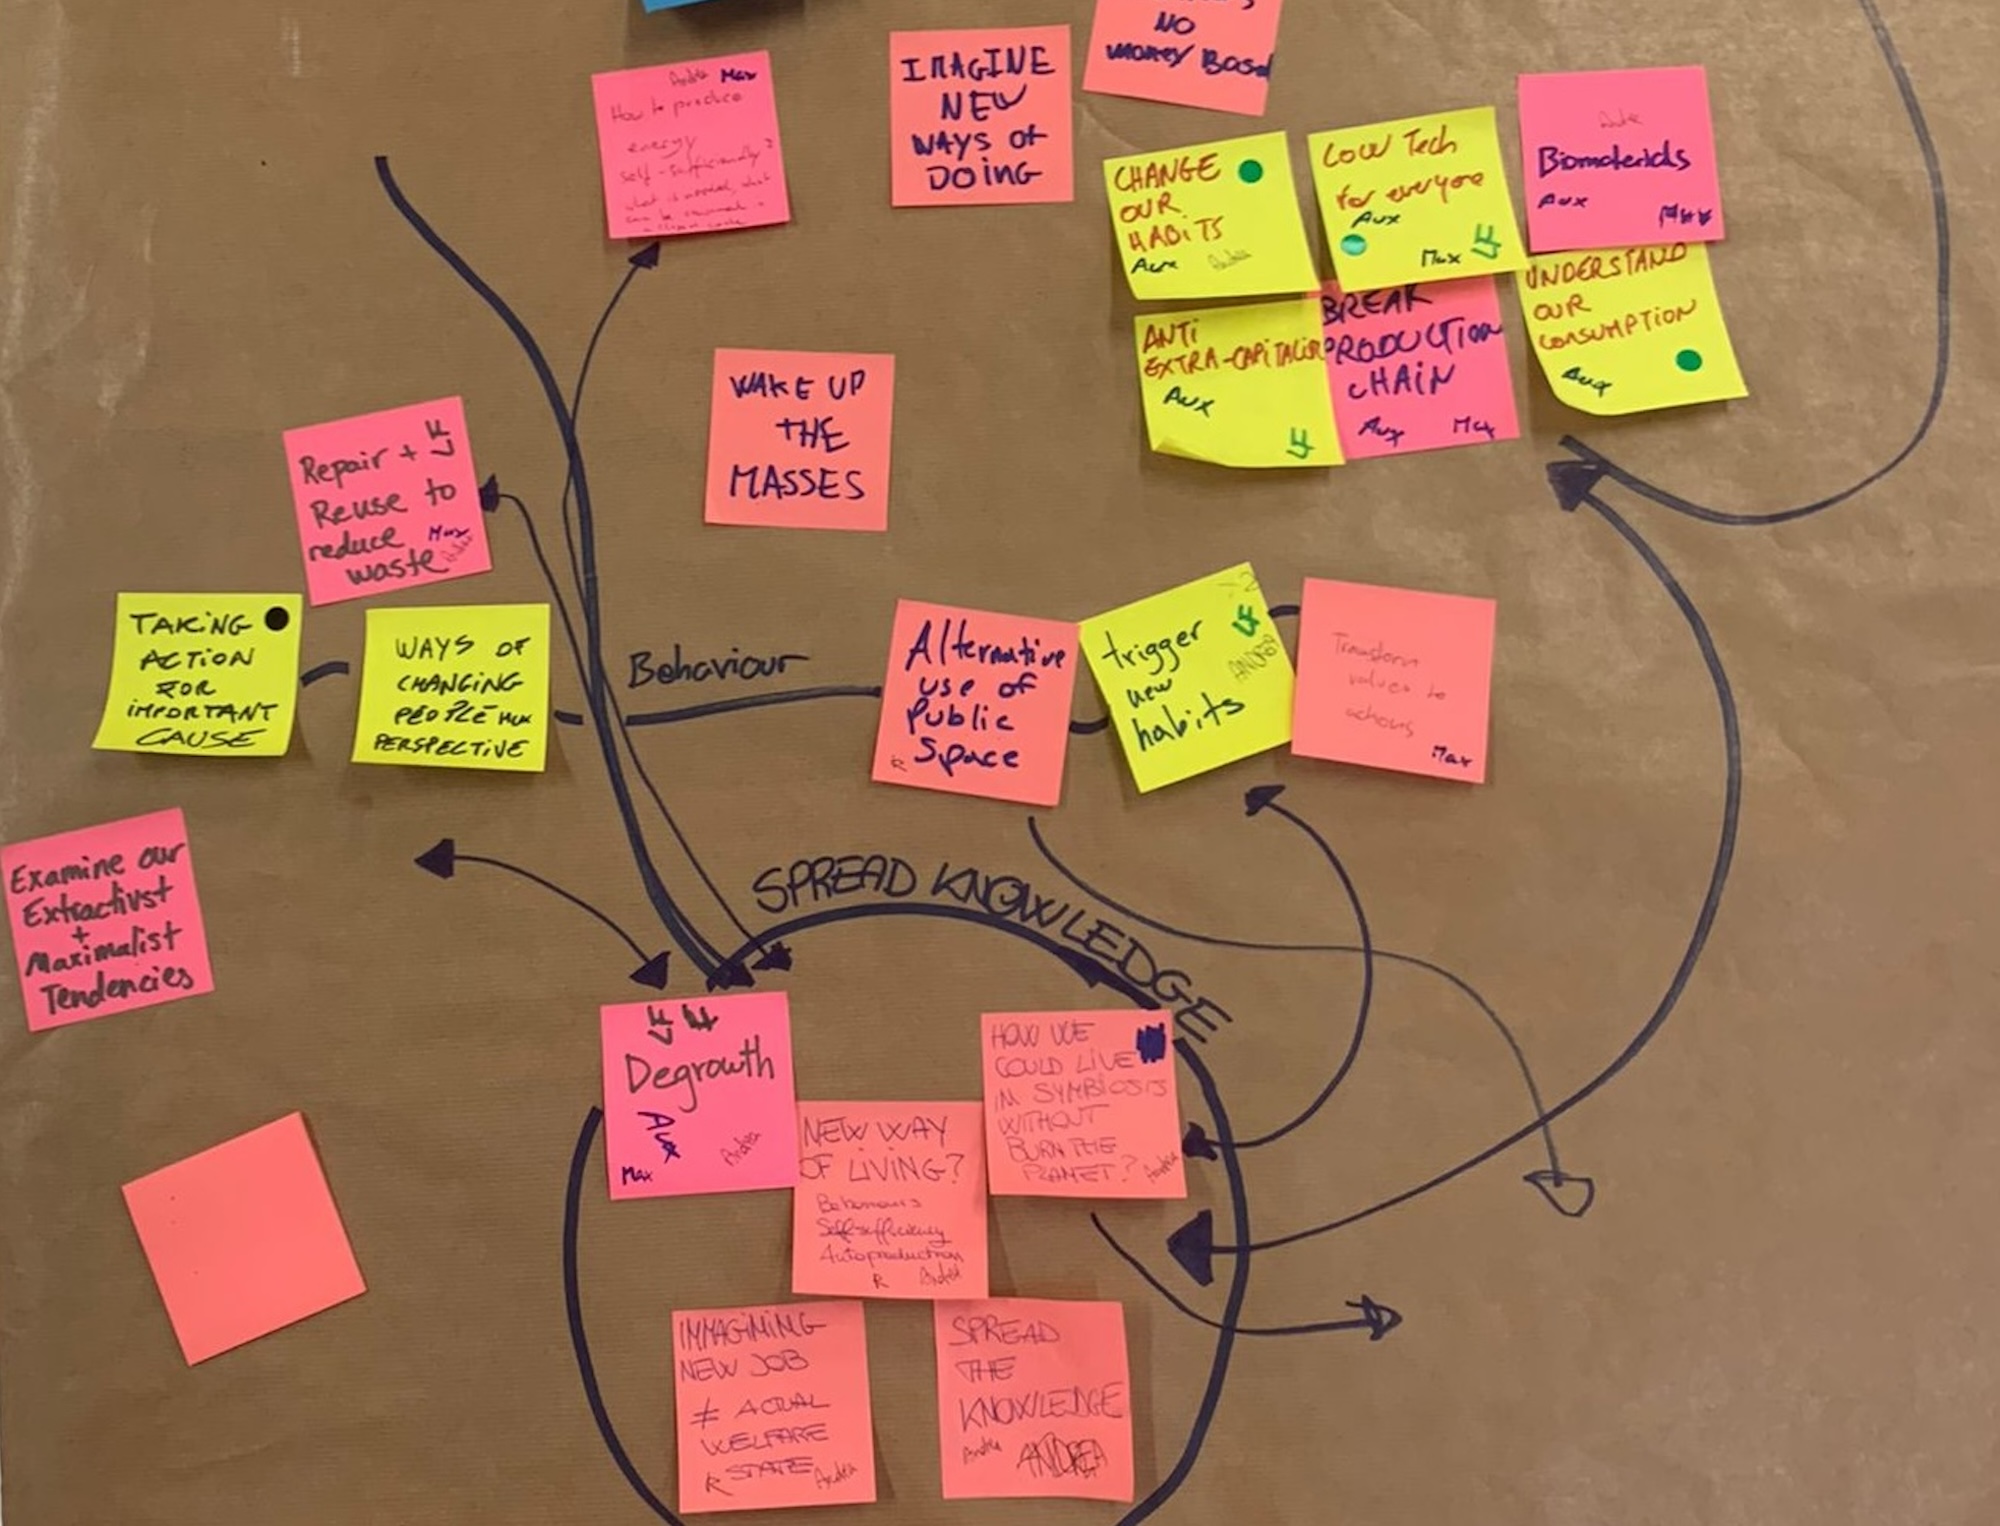 NO
money Based
Andrea Max
How to produce
energy
self-sufficiently?
what is needed, what
can be
IMAGINE
NEW
WAYS OF
DOING
CHANGE
OUR
HABITS
Aux Andrea
Low Tech
for everyone
Aux
Max
Biomaterials
Aux
Max
ANTI
EXTRA-CAPITALISM
Aux
BREAK
PRODUCTION
CHAIN
Aux Max
UNDERSTAND
OUR
CONSUMPTION
Aux
WAKE UP
THE
MASSES
Repair +
Reuse to
reduce Max
waste Andrea
TAKING
ACTION
FOR
IMPORTANT
CAUSE
WAYS OF
CHANGING
PEOPLE Max
PERSPECTIVE
Behaviour
Alternative
use of
Public
Space
R
trigger
new
habits
ANDREA
Transform
values to
actions
Max
Examine our
Extractivst
+
Maximalist
Tendencies
SPREAD KNOWLEDGE
Degrowth
Aux
Max Andrea
NEW WAY
OF LIVING?
Behaviours
Self-sufficiency
Autoproduction
R Andrea
HOW WE
COULD LIVE
IN SYMBIOSIS
WITHOUT
BURN THE
PLANET?
Andrea
IMMAGINING
NEW JOB
≠ ACTUAL
WELFARE
STATE
R Andrea
SPREAD
THE
KNOWLEDGE
Andrea ANDREA